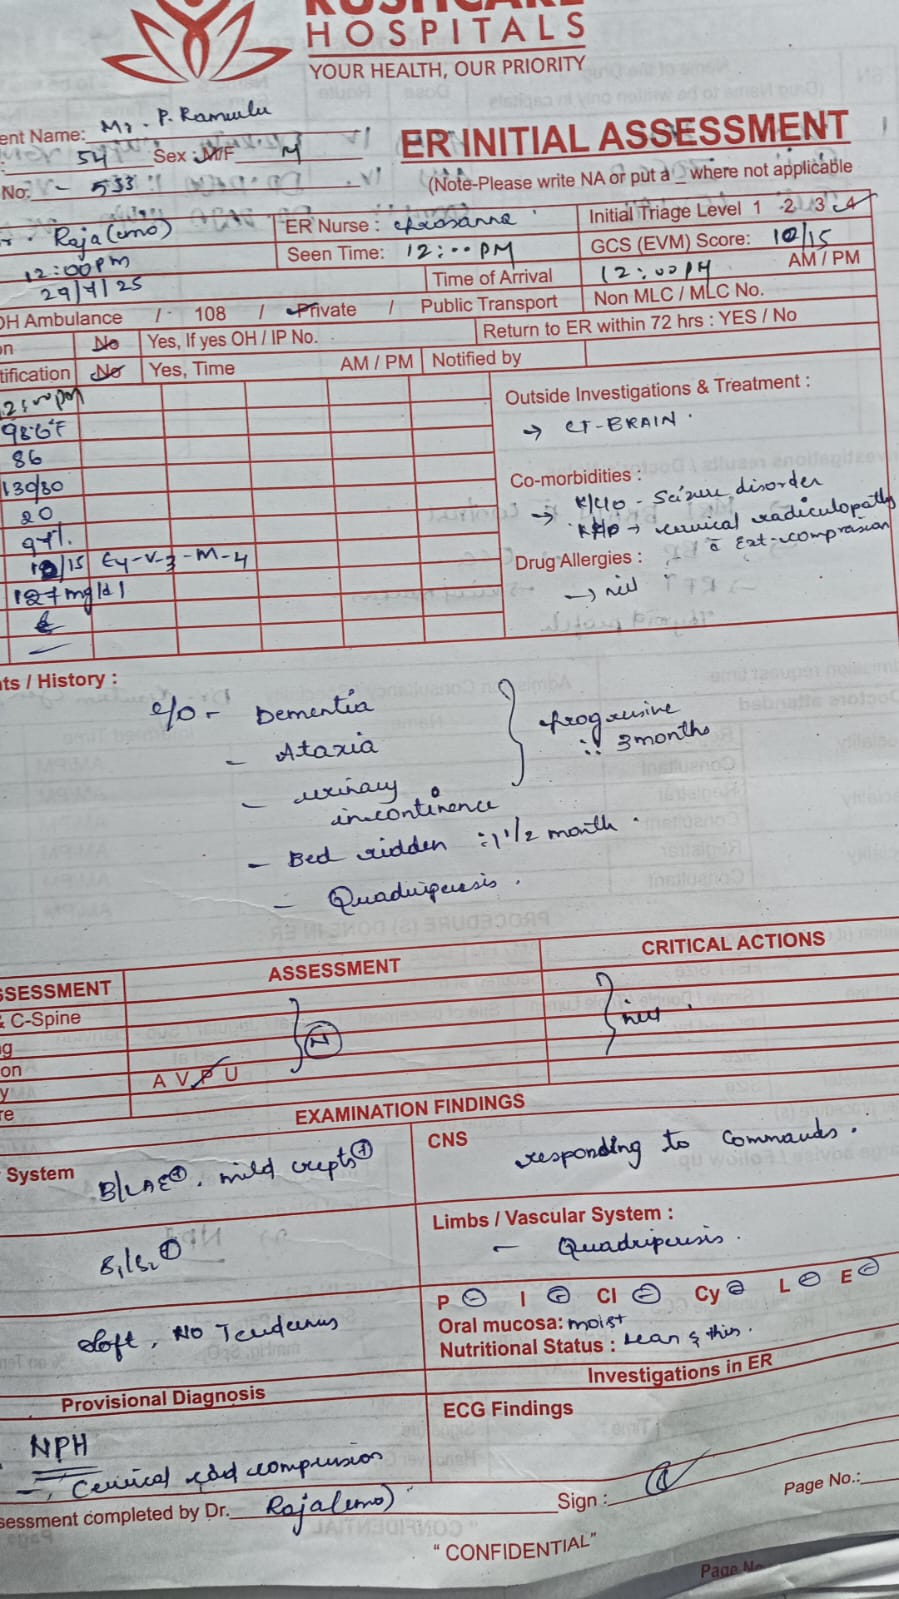 HOSPITALS
YOUR HEALTH, OUR PRIORITY
ent Name: Mr. P. Ramulu
ER INITIAL ASSESSMENT
54 Sex : M/F M
No: - 533
(Note-Please write NA or put a _ where not applicable
Raja (cmo)
ER Nurse :
Initial Triage Level 1 2 3 4
12:00pm
Seen Time: 12:00 PM
GCS (EVM) Score: 10/15
29/7/25
Time of Arrival 12:00 PM AM / PM
OH Ambulance / 108 / Private / Public Transport
Non MLC / MLC No.
on No Yes, If yes OH / IP No.
Return to ER within 72 hrs : YES / No
tification No Yes, Time AM / PM Notified by
12:00pm
98.6°F
86
130/80
20
97%
10/15 E4-V-3-M-4
127mg/dl
Outside Investigations & Treatment :
→ CT-BRAIN.
Co-morbidities :
→ K/C/O - Seizure disorder
→ cervical radiculopathy
c̄ Ext-compression
Drug Allergies :
→ nill
nts / History :
c/o - Dementia
- Ataxia
- urinary
incontinence
progressive
∴ 3months
- Bed ridden ∴ 1 1/2 month.
- Quadriperesis.
SSESSMENT ASSESSMENT CRITICAL ACTIONS
& C-Spine
g
on
y A V P U
re
N
nill.
EXAMINATION FINDINGS
System B/L AE⊕, mild crepts⊕
CNS
responding to commands.
S1/S2 ⊕
Limbs / Vascular System :
- Quadriperesis.
soft, NO Tenderness
P ⊖ I ⊖ Cl ⊖ Cy ⊖ L ⊖ E ⊖
Oral mucosa: moist
Nutritional Status : Lean & thin.
Provisional Diagnosis
Investigations in ER
NPH
ECG Findings
- Cervical cord compression
sessment completed by Dr. Raja(cmo)
Sign :
Page No.:
"CONFIDENTIAL"
Page No